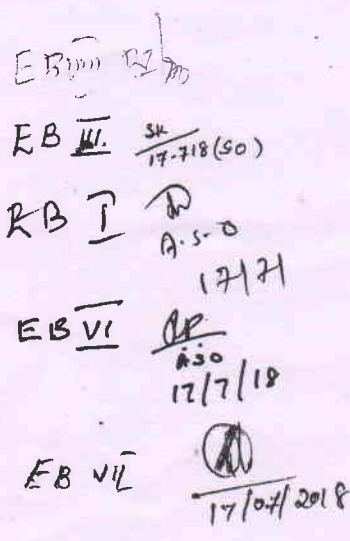 EB
EB III. SK
17-718(SO)
EB I
A.S.O
17/7/
EB VI
ASO
17/7/18
EB VII
17/07/2018